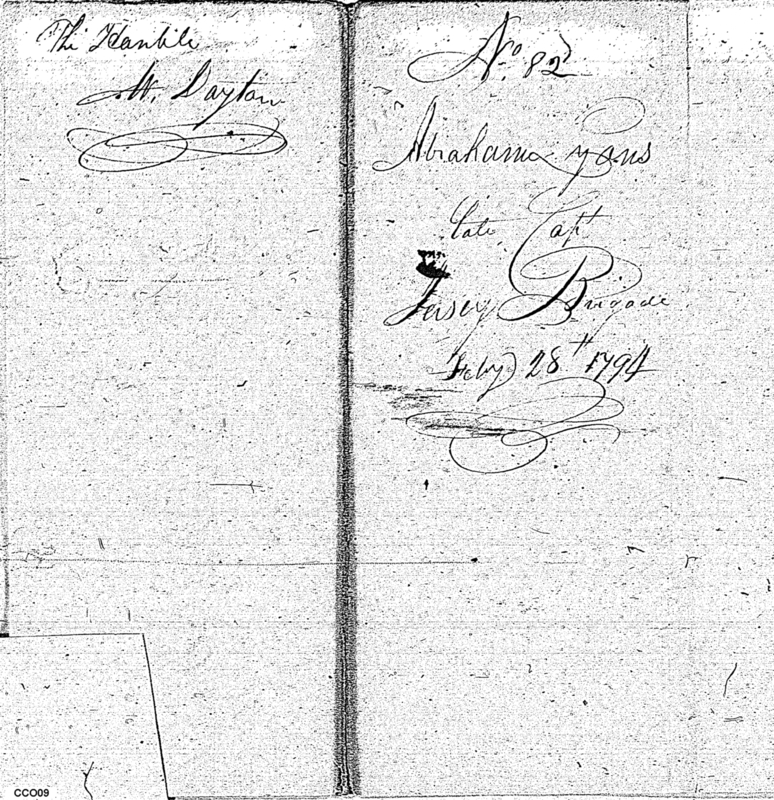 The Honble
Mr. Dayton
No. 82
Abraham Lyons
late Capt
Jersey Brigade
Feby 28th 1794
CCO09